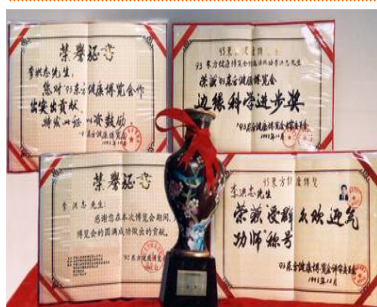 荣誉证书
李洪志先生:
您对'93东方健康博览会作
出突出贡献,
特发此证 以资鼓励。
'93东方健康博览会
1993年12月
荣获'93东方健康博览会
边缘科学进步奖
'93东方健康博览会
1993年12月
荣誉证书
李洪志 先生:
感谢您在本次博览会期间,
博览会的圆满成功做出的贡献。
'93东方健康博览会
'93东方健康博览
李洪志 先生:
荣获受群众欢迎气
功师称号
'93东方健康博览会
1993年12月